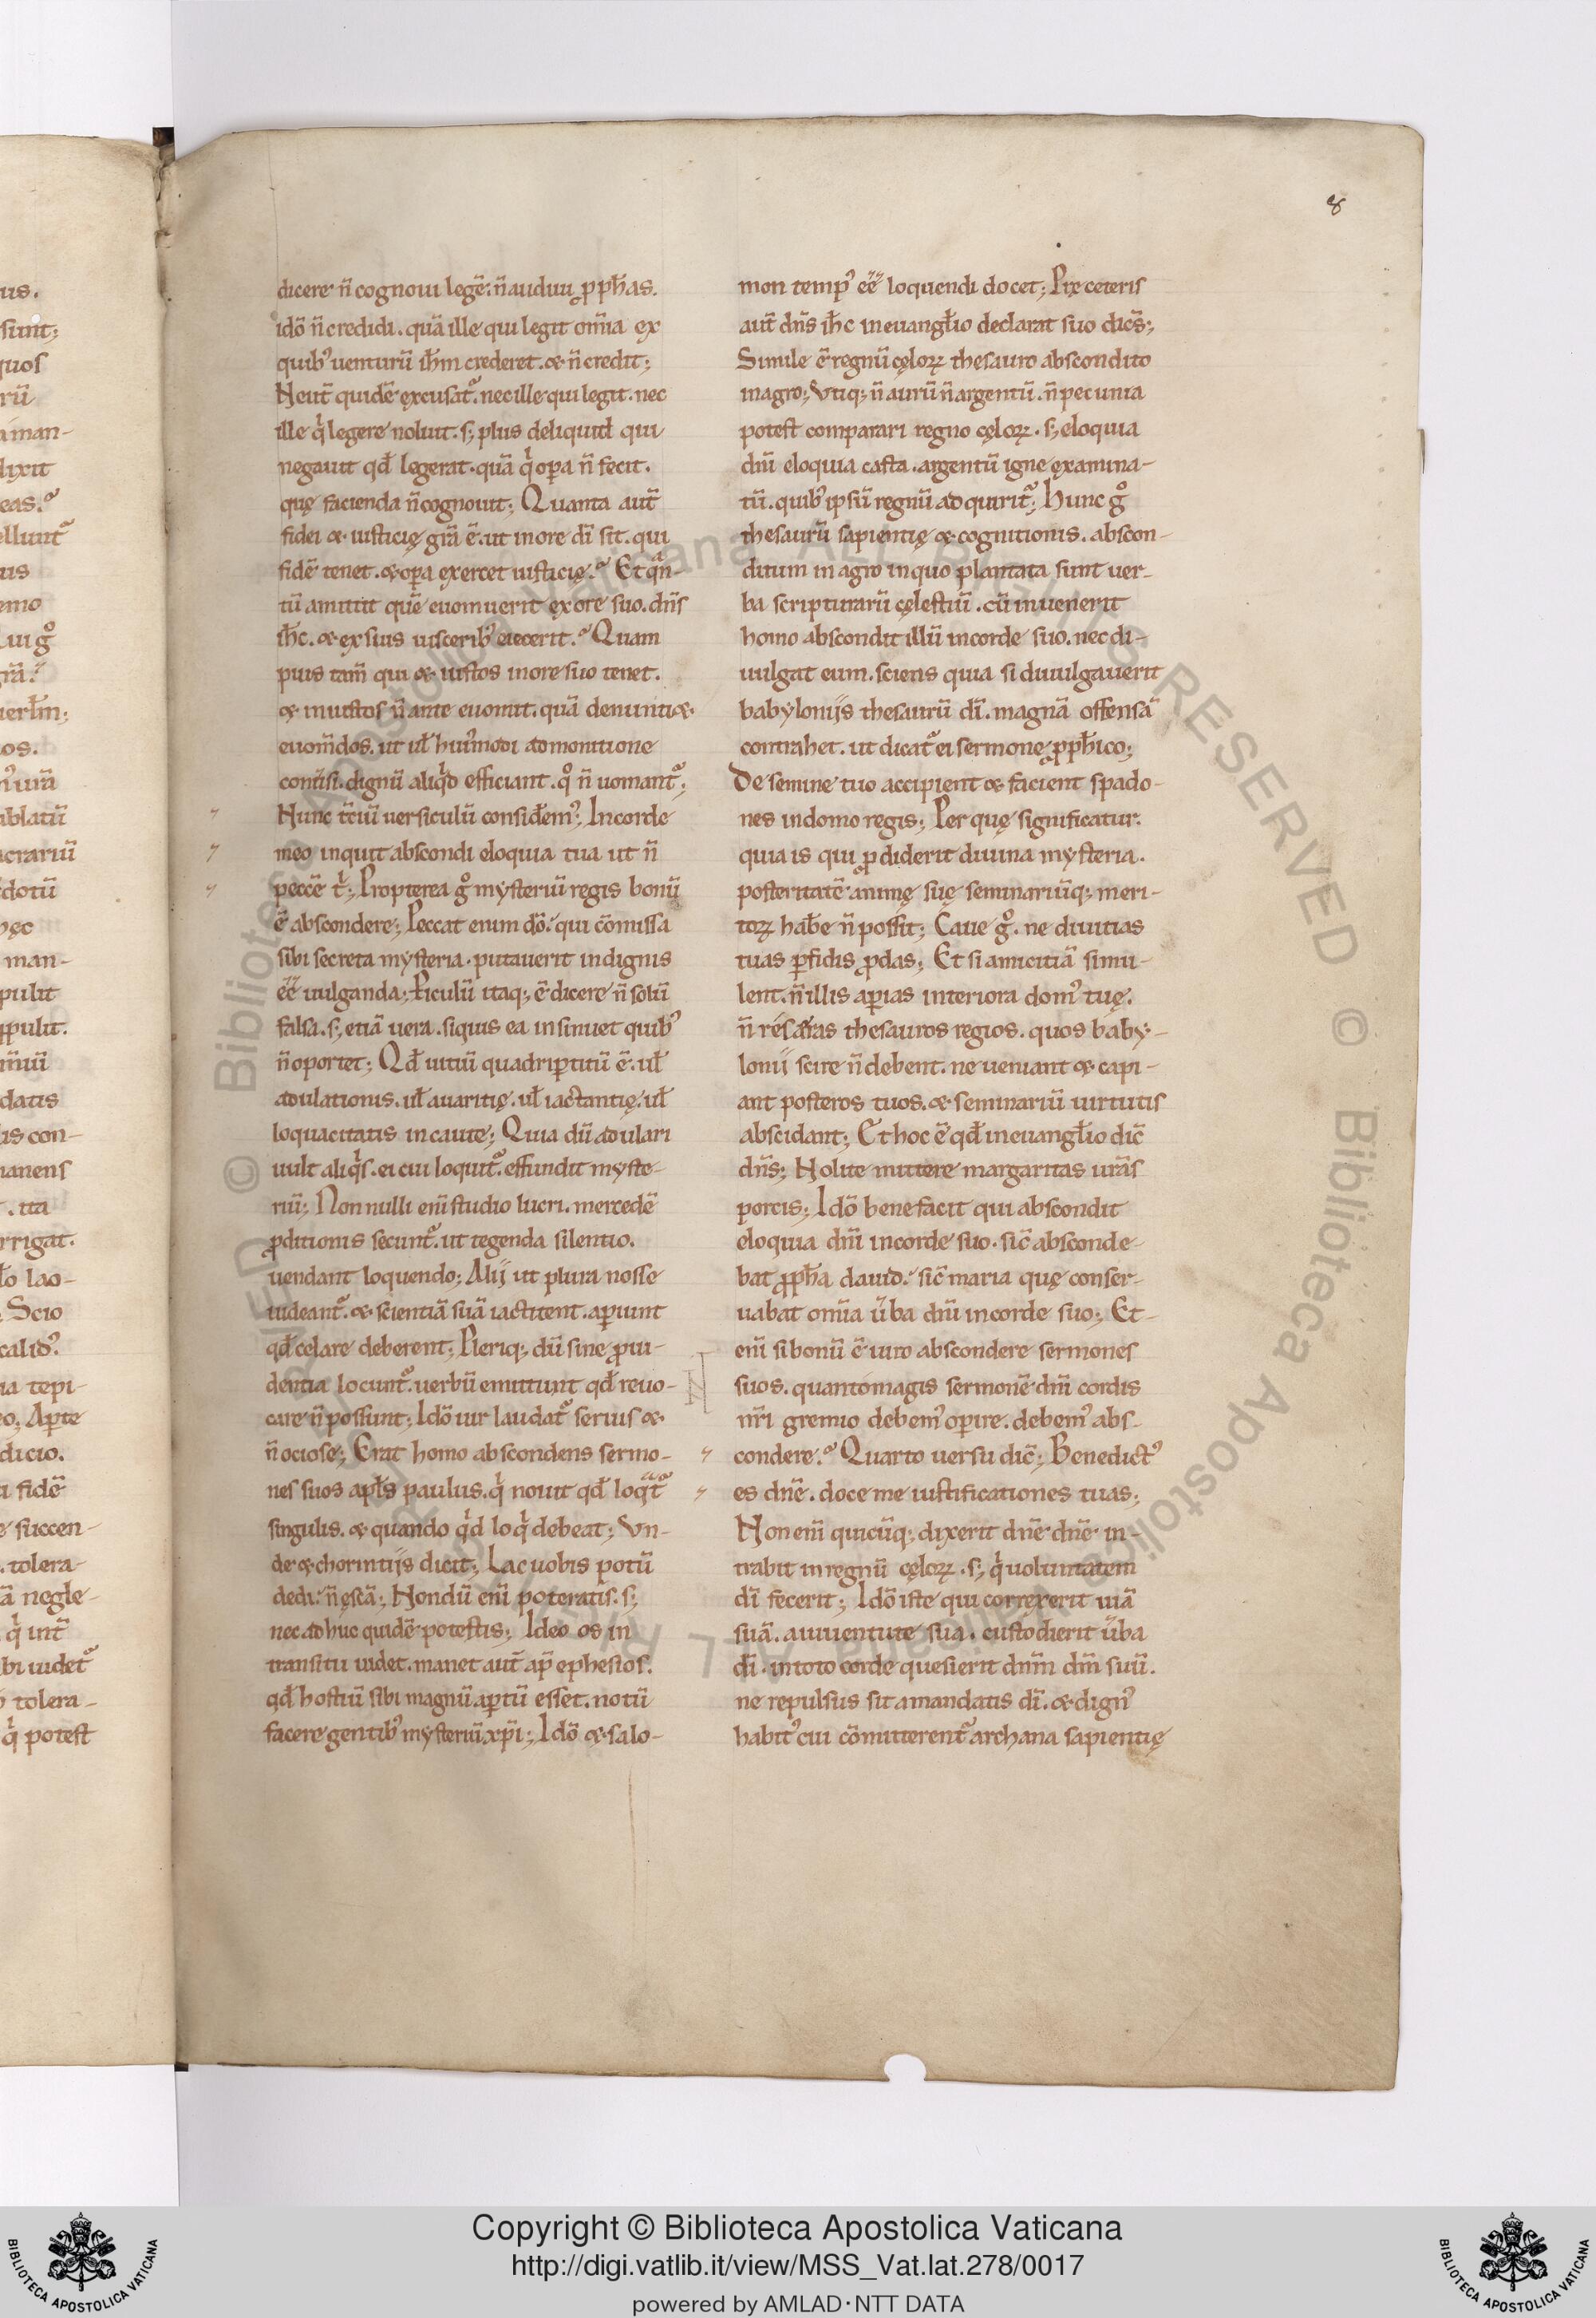 us.
sunt;
quos
rū
aman-
dixit
eas.
ellunt᷑
us
emo
ui gͦ
grā.
ierlm̄;
os.
urā
ablatū
acrariū
dotū
hęc
man-
pulit
ppulit.
datis
is con-
manens
. ita
rrigat.
lao-
Scio
calidꝰ
ia tepi-
eo; Aꝑte
dicio.
fidē
succen-
. tolera-
ā negle-
q̇ int̄
bi uidet᷑
tolera-
q̇ potest
8
dicere n̄ cognoui legē. n̄ audiui ꝓph̄as.
idō n̄ credidi. quā ille qui legit om̄ia ex
quibꝰ uenturū ih̄m crederet. & n̄ credit;
Neut̄ quidē excusat᷑. nec ille qui legit. nec
ille q̇ legere noluit. s; plus deliquid qui
negauit qđ legerat. quā q̇ oꝑa n̄ fecit.
quę facienda n̄ cognouit; Quanta aut̄
fidei & iusticię gr̄a ē. ut in ore dī sit. qui
fidē tenet. & oꝑa exercet iusticię. Et qan-
tū amittit quē euomuerit ex ore suo. dn̄s
ih̄c. & ex suis uisceribꝰ eiecerit. Quam
pius tam̄ qui & iustos in ore suo tenet.
& iniustos n̄ ante euomit. quā denunti&
euom̄dos. ut ul̄ huiꝰmodi admonitione
conūsi. dignū aliq̇d efficiant. qͦ n̄ uomant᷑;
Nunc t̄ciū uersiculū consid̄emꝰ; In corde
meo inquit abscondi eloquia tua ut n̄
peccē ṫ; Propterea gͦ mysteriū regis bonū
ē abscondere; Peccat enim dō. qui cōmissa
sibi secreta mysteria. putauerit indignis
ēē uulganda; Ꝑiculū itaq; ē dicere n̄ solū
falsa. s; etiā uera. siquis ea insinuet quibꝰ
n̄ oportet; Qđ uitiū quadriꝑtitū ē. ul̄
adulationis. ul̄ auaritię. ul̄ iactantię. ul̄
loquacitatis incaute; Quia dū adulari
uult aliq̇s. ei cui loquit᷑. effundit myste-
riū; Non nulli eni studio lucri. mercedē
ꝓditionis secunt᷑. ut tegenda silentio.
uendant loquendo; Alij ut plura nosse
uideant᷑. & scientiā suā iactitent. aꝑiunt
qđ celare deberent; Pleriq; dū sine ꝓui-
dentia locunt᷑. uerbū emittunt qđ reuo-
care n̄ possunt; Idō uir laudat᷑ serius &
n̄ ociose; Erat homo abscondens sermo-
nes suos apl̄s paulus. q̇ nouit qđ loqat᷑
singulis. & quando q̇d loq̇ debeat; Vn-
de & chorintijs dicit; Lac uobis potū
dedi. n̄ escā; Nondū eni poteratis. s;
nec adhuc quidē potestis; Ideo os in
transitu uidet. manet aut̄ ap̄ ephesios.
qđ hostiū sibi magnū aꝑtū esset. notū
facere gentibꝰ mysteriū xp̄i; Idō & salo-
mon tempꝰ ēē loquendi docet; Prę ceteris
aut̄ dn̄s ih̄c in euangl̄io declarat suo dicēs;
Simile ē regnū cęloꝝ thesauro abscondito
in agro; Vtiq; n̄ aurū n̄ argentū. n̄ pecunia
potest comparari regno cęloꝝ. s; eloquia
dn̄i eloquia casta. argentū igne examina-
tū. quibꝰ ipsū regnū adquirit᷑; Hunc gͦ
thesaurū sapientię & cognitionis. abscon-
ditum in agro in quo plantata sunt uer-
ba scripturarū cęlestiū. cū inuenerit
homo abscondit illū in corde suo. nec di-
uulgat eum. sciens quia si diuulgauerit
babylonijs thesaurū dī. magnā offensā
contrahet. ut dicat᷑ ei sermone ꝓph̄ico;
De semine tuo accipient & facient spado-
nes in domo regis; Per quę significatur.
quia is qui ꝓdiderit diuina mysteria.
posteritatē animę suę seminariūq; meri-
toꝝ hab̄e n̄ possit; Caue gͦ. ne diuitias
tuas ꝑfidis ꝓdas; Et si amicitiā simu-
lent. n̄ illis aꝑias interiora domꝰ tuę.
n̄ reseras thesauros regios. quos baby-
lonij scire n̄ debent. ne ueniant & capi-
ant posteros tuos. & seminariū uirtutis
abscidant; Et hoc ē qđ in euangl̄io dic̄
dn̄s; Nolite mittere margaritas urās
porcis; Idō bene facit qui abscondit
eloquia dn̄i in corde suo. sic̄ absconde-
bat ꝓph̄a dauid. sic̄ maria quę conser-
uabat om̄ia ūba dn̄i in corde suo; Et-
eni si bonū ē uiro abscondere sermones
suos. quanto magis sermonē dn̄i cordis
nr̄i gremio debemꝰ oꝑire. debemꝰ abs-
condere. Quarto uersu dic̄; Benedictꝰ
es dn̄e. doce me iustificationes tuas;
Non eni quicūq; dixerit dn̄e dn̄e in-
trabit in regnū cęloꝝ. s; q̇ uoluntatem
dī fecerit; Idō iste qui correxerit uiā
suā. a iuuentute sua. custodierit ūba
dī. in toto corde quesierit dn̄m dm̄ suū.
ne repulsus sit a mandatis dī. & dignꝰ
habitꝰ cui cōmitterent᷑ archana sapientię
© Biblioteca Apostolica Vaticana ALL RIGHTS RESERVED © Biblioteca Apostolica Vaticana ALL RIGHTS RESERVED
BIBLIOTECA APOSTOLICA VATICANA
Copyright © Biblioteca Apostolica Vaticana
http://digi.vatlib.it/view/MSS_Vat.lat.278/0017
powered by AMLAD·NTT DATA
BIBLIOTECA APOSTOLICA VATICANA